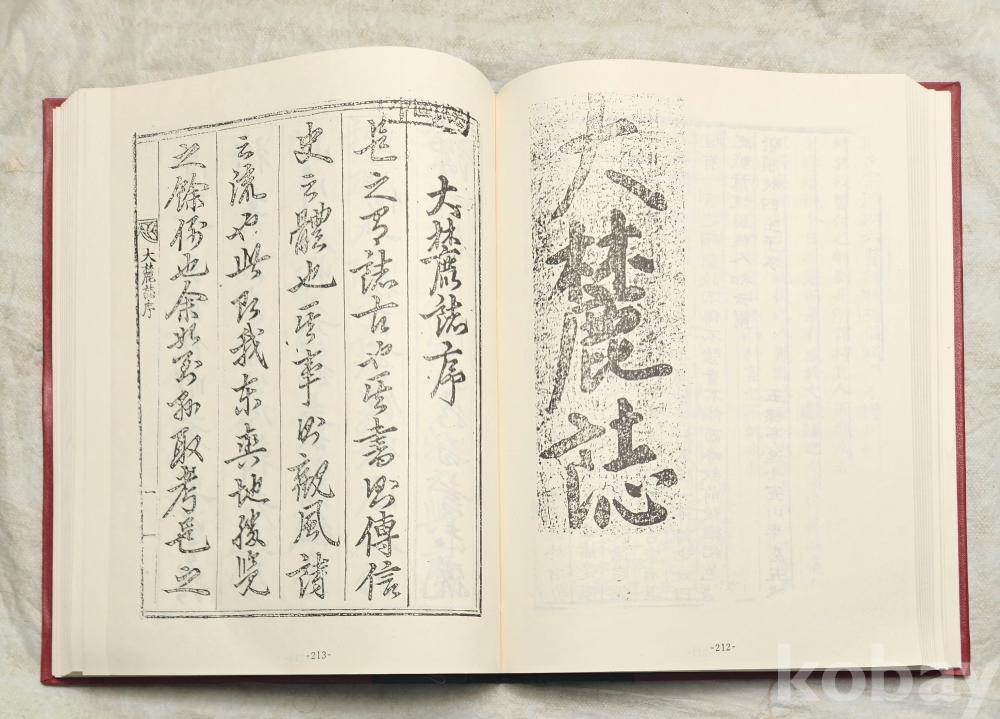 大麓誌
-212-
大麓誌序
邑之有誌古也其書則傳信
史之體也其事則觀風詩
之流也此即我東輿地勝覽
之餘例也余於至取考邑之
大麓誌序
一
-213-
kobay